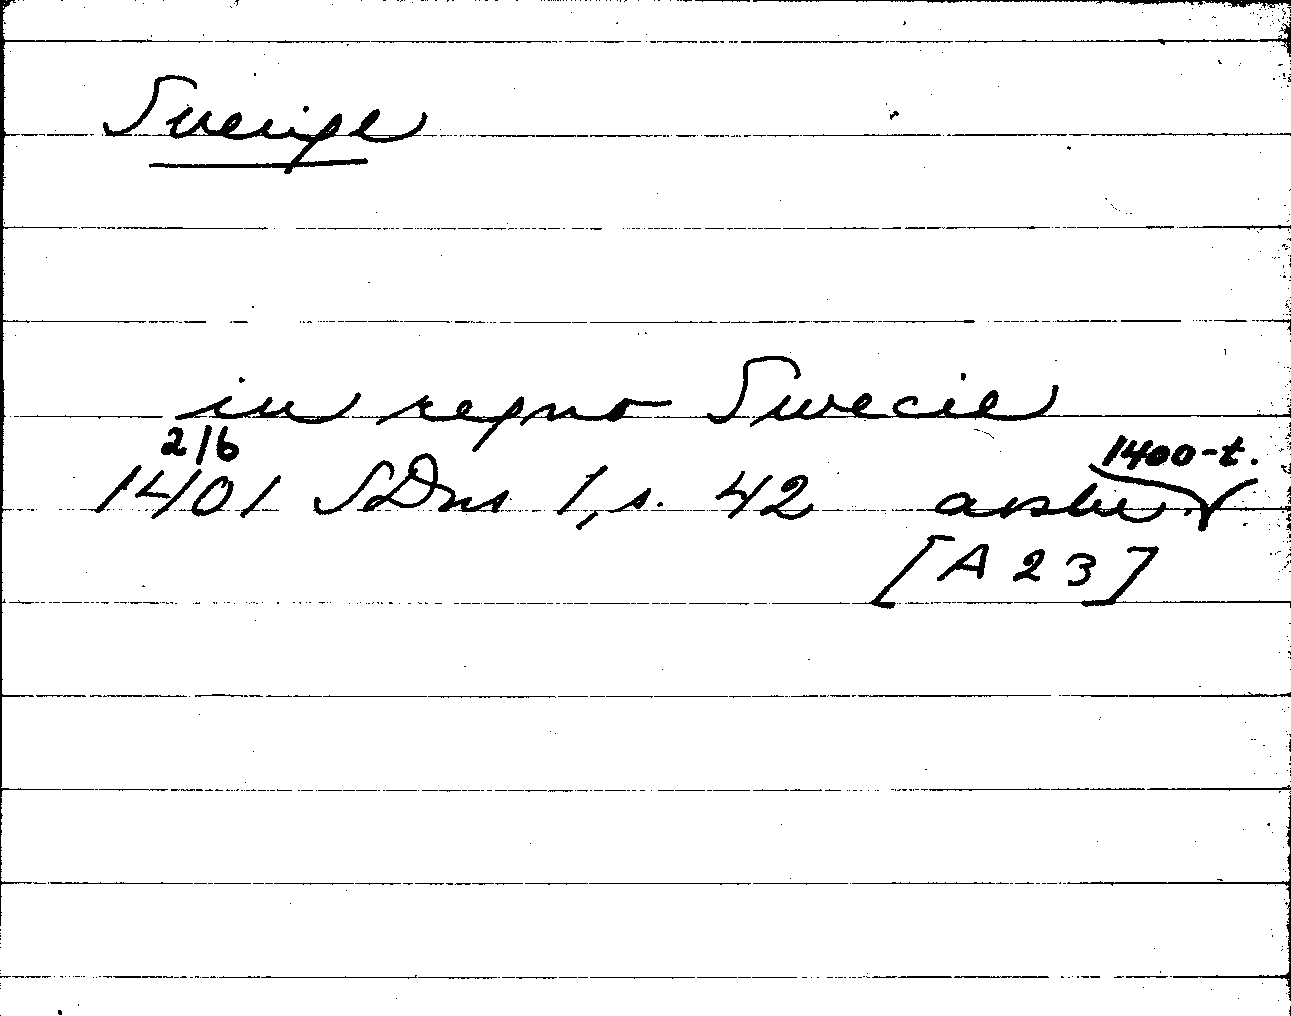 Sverige
in regno Swecie
2/6
1400-t.
1401 SDns 1, s. 42 avskr.
[A 23]